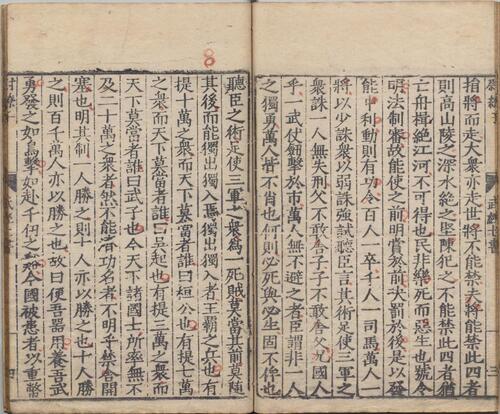 指將而走大衆亦走世將不能禁夫將能禁此四者
則高山陵之深水絶之堅陳犯之不能禁此四者猶
亡舟楫絶江河不可得也民非樂死而惡生也號令
明法制審故能使之前明賞於前決罰於後是以發
能中利動則有功令百人一卒千人一司馬萬人一
將以少誅衆以弱誅強試聽臣言其術足使三軍之
衆誅一人無失刑父不敢舍子子不敢舍父况國人
乎一賊仗劒擊於市萬人無不避之者臣謂非一人
之獨勇萬人皆不肖也何則必死與必生固不侔也
8
聽臣之術足使三軍之衆爲一死賊莫當其前莫隨
其後而能獨出獨入焉獨出獨入者王霸之兵也有
提十萬之衆而天下莫當者誰曰桓公也有提七萬
之衆而天下莫當者誰曰吳起也有提三萬之衆而
天下莫當者誰曰武子也今天下諸國士所率無不
及二十萬之衆者然不能濟功名者不明乎禁舍開
塞也明其制一人勝之則十人亦以勝之也十人勝
之則百千萬人亦以勝之也故曰便吾器用養吾武
勇發之如鳥擊如赴千仞之谿今國被患者以重幣